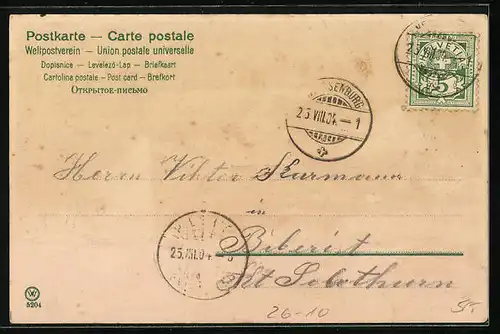 Postkarte – Carte postale
Weltpostverein – Union postale universelle
Dopisnice – Levelező-Lap – Briefkaart
Cartolina postale – Post card – Brefkort
Открытое-письмо
HELVETIA
5
25.VIII.04.–1
Herrn Viktor Kurmann
in
25.VIII.04.
Biberist
Kt Solothurn
5204
26-10